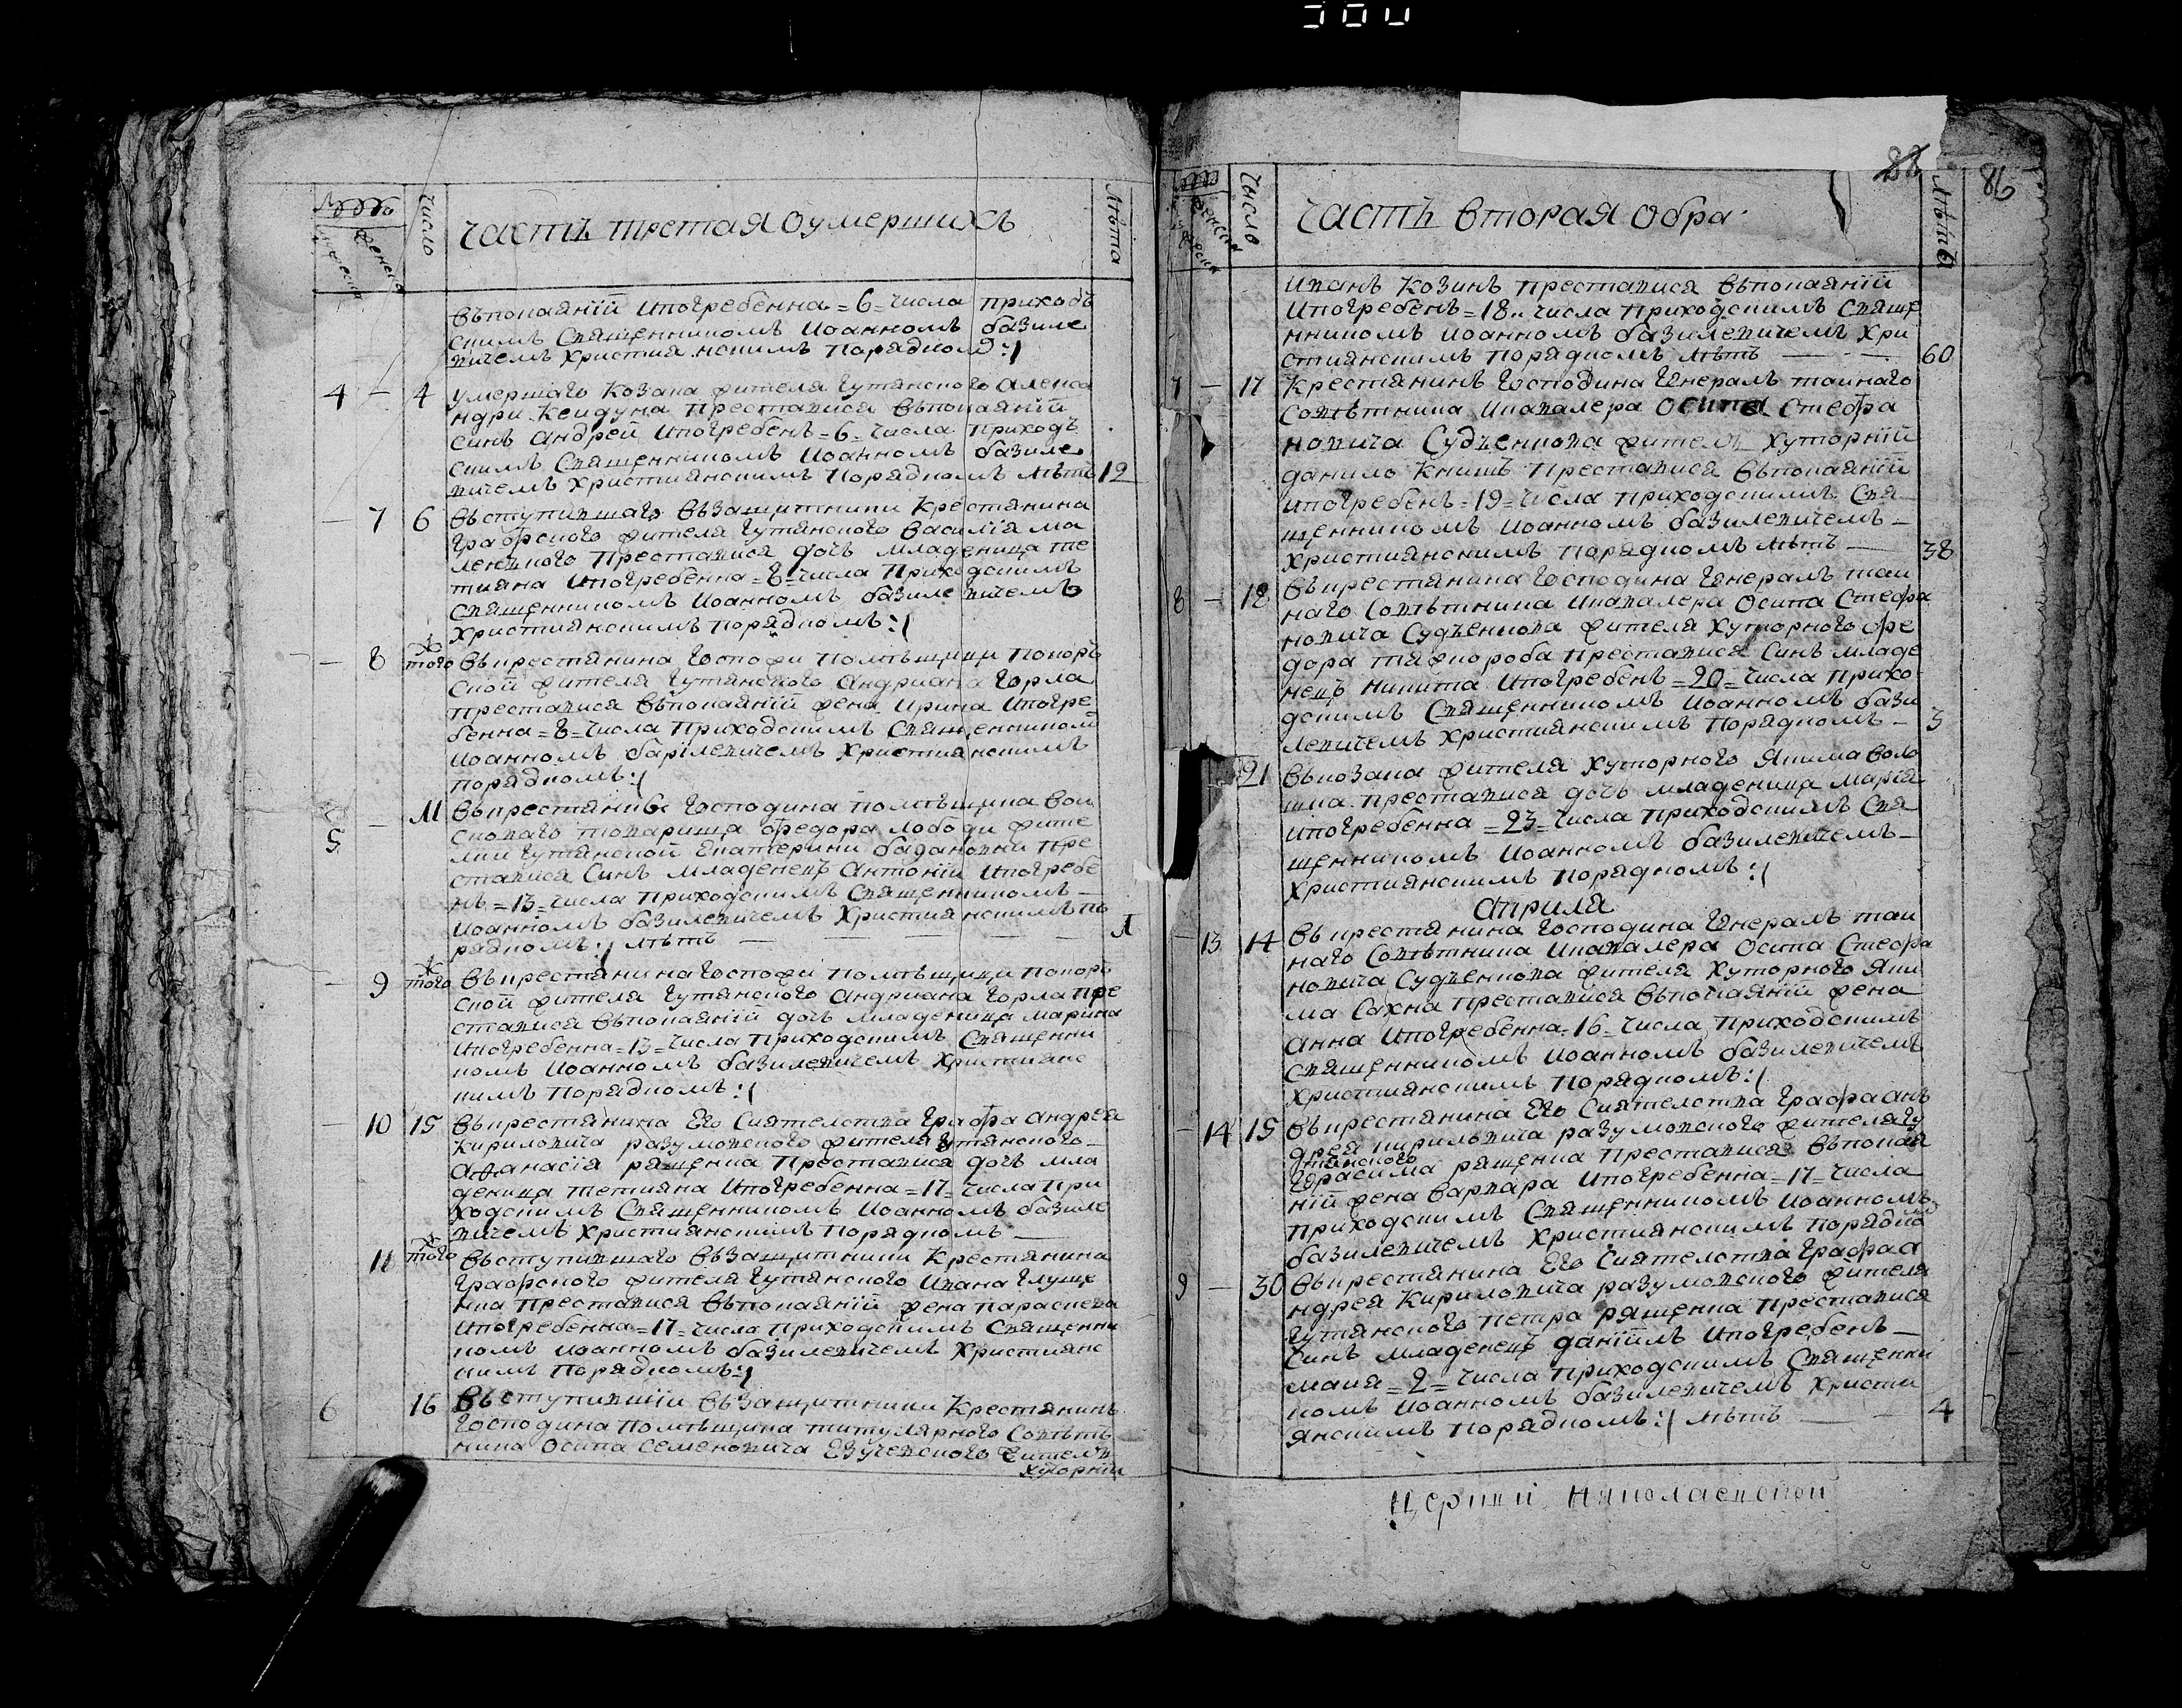 число
часть третая оумершихъ
Лѣта
въпокаяній ипогребенна = 6 = числа приходъ
скимъ Священникомъ Иоанномъ базиле
вичемъ християнскимъ порядком :/
4 – 4 умершаго козака жителя гутянского Алекса
ндри Кендуха преставися въпокаяній
синъ Андрей ипогребенъ = 6 = числа приходъ
скимъ Священникомъ Иоанномъ базиле
вичемъ християнскимъ порядкомъ лѣтъ 12
– 7 6 въступившаго въ защитники крестянина
графского жителя гутянского Василія ма
преставися дочь младеница те
тияна ипогребенна = 8 = числа приходскимъ
священникомъ Иоанномъ базилевичемъ
християнскимъ порядкомъ :/
– 8 того въкрестянина госпожи помѣщици
ской жителя гутянского Андриана Горла
преставися въпокаяній жена Ирина ипогре
бенна = 8 = числа приходскимъ Священникомъ
Иоанномъ базілевичемъ християнскимъ
порядкомъ :/
5 – 11 въкрестянина господина помѣщика вои
скового товарища федора лободи жите
лки гутянской Екатерини преставися Синъ младенецъ Антоній ипогребе
нъ = 13 = числа приходскимъ Священникомъ –
Иоанномъ базилевичемъ християнскимъ по
рядкомъ :/ лѣтъ –
– 9 того въкрестянина госпожи помѣщици
ской жителя гутянского Андриана Горла пре
ставися въпокаяній дочь младеница марина
ипогребенна = 13 = числа приходскимъ Священни
комъ Иоанномъ базилевичемъ християнс
кимъ порядкомъ :/
– 10 15 въкрестянина Его Сиятелства графа Андрея
Кириловича разумовского жителя гутянского –
Афанасія ращенка преставися дочь мла
деница тетияна ипогребенна = 17 = числа при
ходскимъ Священникомъ Иоанномъ базиле
вичемъ християнскимъ порядкомъ –
11 того въступившаго въ защитники крестянина
графского жителя гутянского Ивана Глуще
нка преставися въпокаяній жена параскева
ипогребенна = 17 = числа приходскимъ Священни
комъ Иоанномъ базилевичемъ християнс
кимъ порядкомъ :/
6 16 въступившій въ защитники крестянинъ
господина помѣщика титулярного Совѣт
ника Осипа Семеновича жителъ
хуторній
86
число
часть вторая обра
Лѣта
Иванъ Козинъ преставися въпокаяній
ипогребенъ = 18 = числа приходскимъ Свяще
нникомъ Иоанномъ базилевичемъ хри
стиянскимъ порядкомъ лѣтъ – – 60
7 – 17 крестянинъ господина генералъ таиного
Совѣтника икавалера Осипа Стефа
новича Судъенкова жителъ хуторній
данило Книшъ преставися въпокаяній
ипогребенъ = 19 = числа приходскимъ Свя
щенникомъ Иоанномъ базилевичемъ –
християнскимъ порядкомъ лѣтъ – 38
8 – 18 въкрестянина господина генералъ таи
наго Совѣтника икавалера Осипа Стефа
новича Судъенкова жителя хуторного фе
дора преставися Синъ младе
нецъ никита ипогребенъ = 20 = числа прихо
дскимъ Священникомъ Иоанномъ бази
левичемъ християнскимъ порядкомъ – 3
21 въкозака жителя хуторного Якима воло
шка преставися дочь младеница марія
ипогребенна = 23 = числа приходскимъ Свя
щенникомъ Иоанномъ базилевичемъ –
християнскимъ порядкомъ :/
Априля
– 13 14 въкрестянина господина генералъ таи
наго Совѣтника икавалера Осипа Стефа
новича Судъенкова жителя хуторного Яки
ма Сахна преставися въпокаяній жена
Анна ипогребенна = 16 = числа приходскимъ
священникомъ Иоанномъ базилевичемъ
християнскимъ порядкомъ :/
– 14 15 въкрестянина Его Сиятелства графа Ан
дрея кириловича разумовского жителя гу
тянского
Герасима ращенка преставися въпокая
ній жена варвара ипогребенна = 17 = числа
приходскимъ Священникомъ Иоанномъ
базилевичемъ християнскимъ порядко
9 – 30 въкрестянина Его Сиятелства графа А
ндрея Кириловича разумовского жителя
гутянского петра ращенка преставися
Синъ младенецъ даніилъ ипогребенъ –
мaия = 2 = числа приходскимъ Священни
комъ Иоанномъ базилевичемъ христи
янскимъ порядкомъ :/ лѣтъ – – 4
Церкви Николаевской